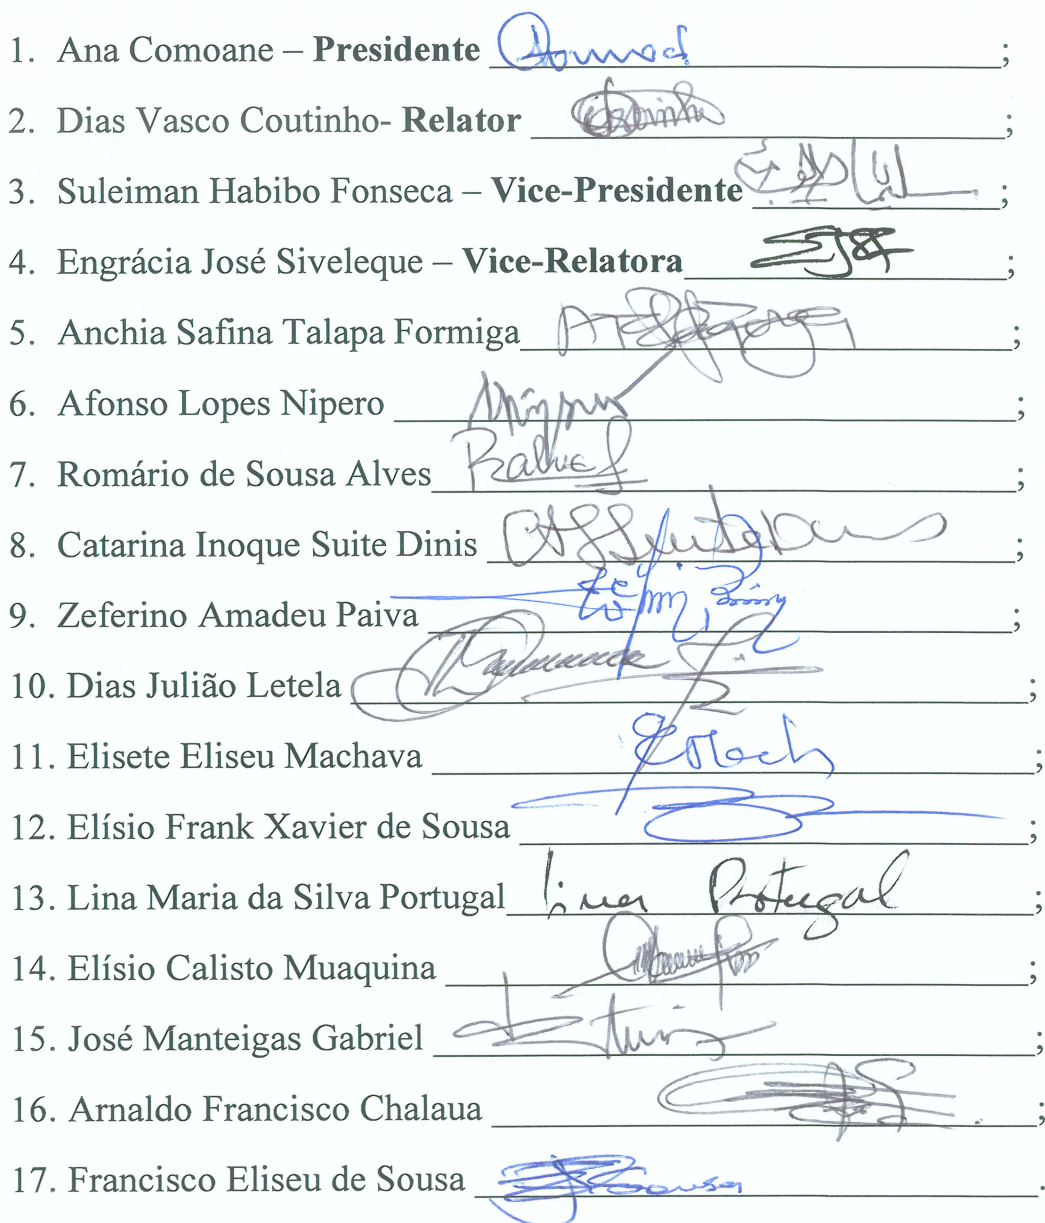 1. Ana Comoane – Presidente ;
2. Dias Vasco Coutinho- Relator ;
3. Suleiman Habibo Fonseca – Vice-Presidente ;
4. Engrácia José Siveleque – Vice-Relatora ;
5. Anchia Safina Talapa Formiga ;
6. Afonso Lopes Nipero ;
7. Romário de Sousa Alves ;
8. Catarina Inoque Suite Dinis ;
9. Zeferino Amadeu Paiva ;
10. Dias Julião Letela ;
11. Elisete Eliseu Machava ;
12. Elísio Frank Xavier de Sousa ;
13. Lina Maria da Silva Portugal Lina Portugal ;
14. Elísio Calisto Muaquina ;
15. José Manteigas Gabriel ;
16. Arnaldo Francisco Chalaua ;
17. Francisco Eliseu de Sousa .